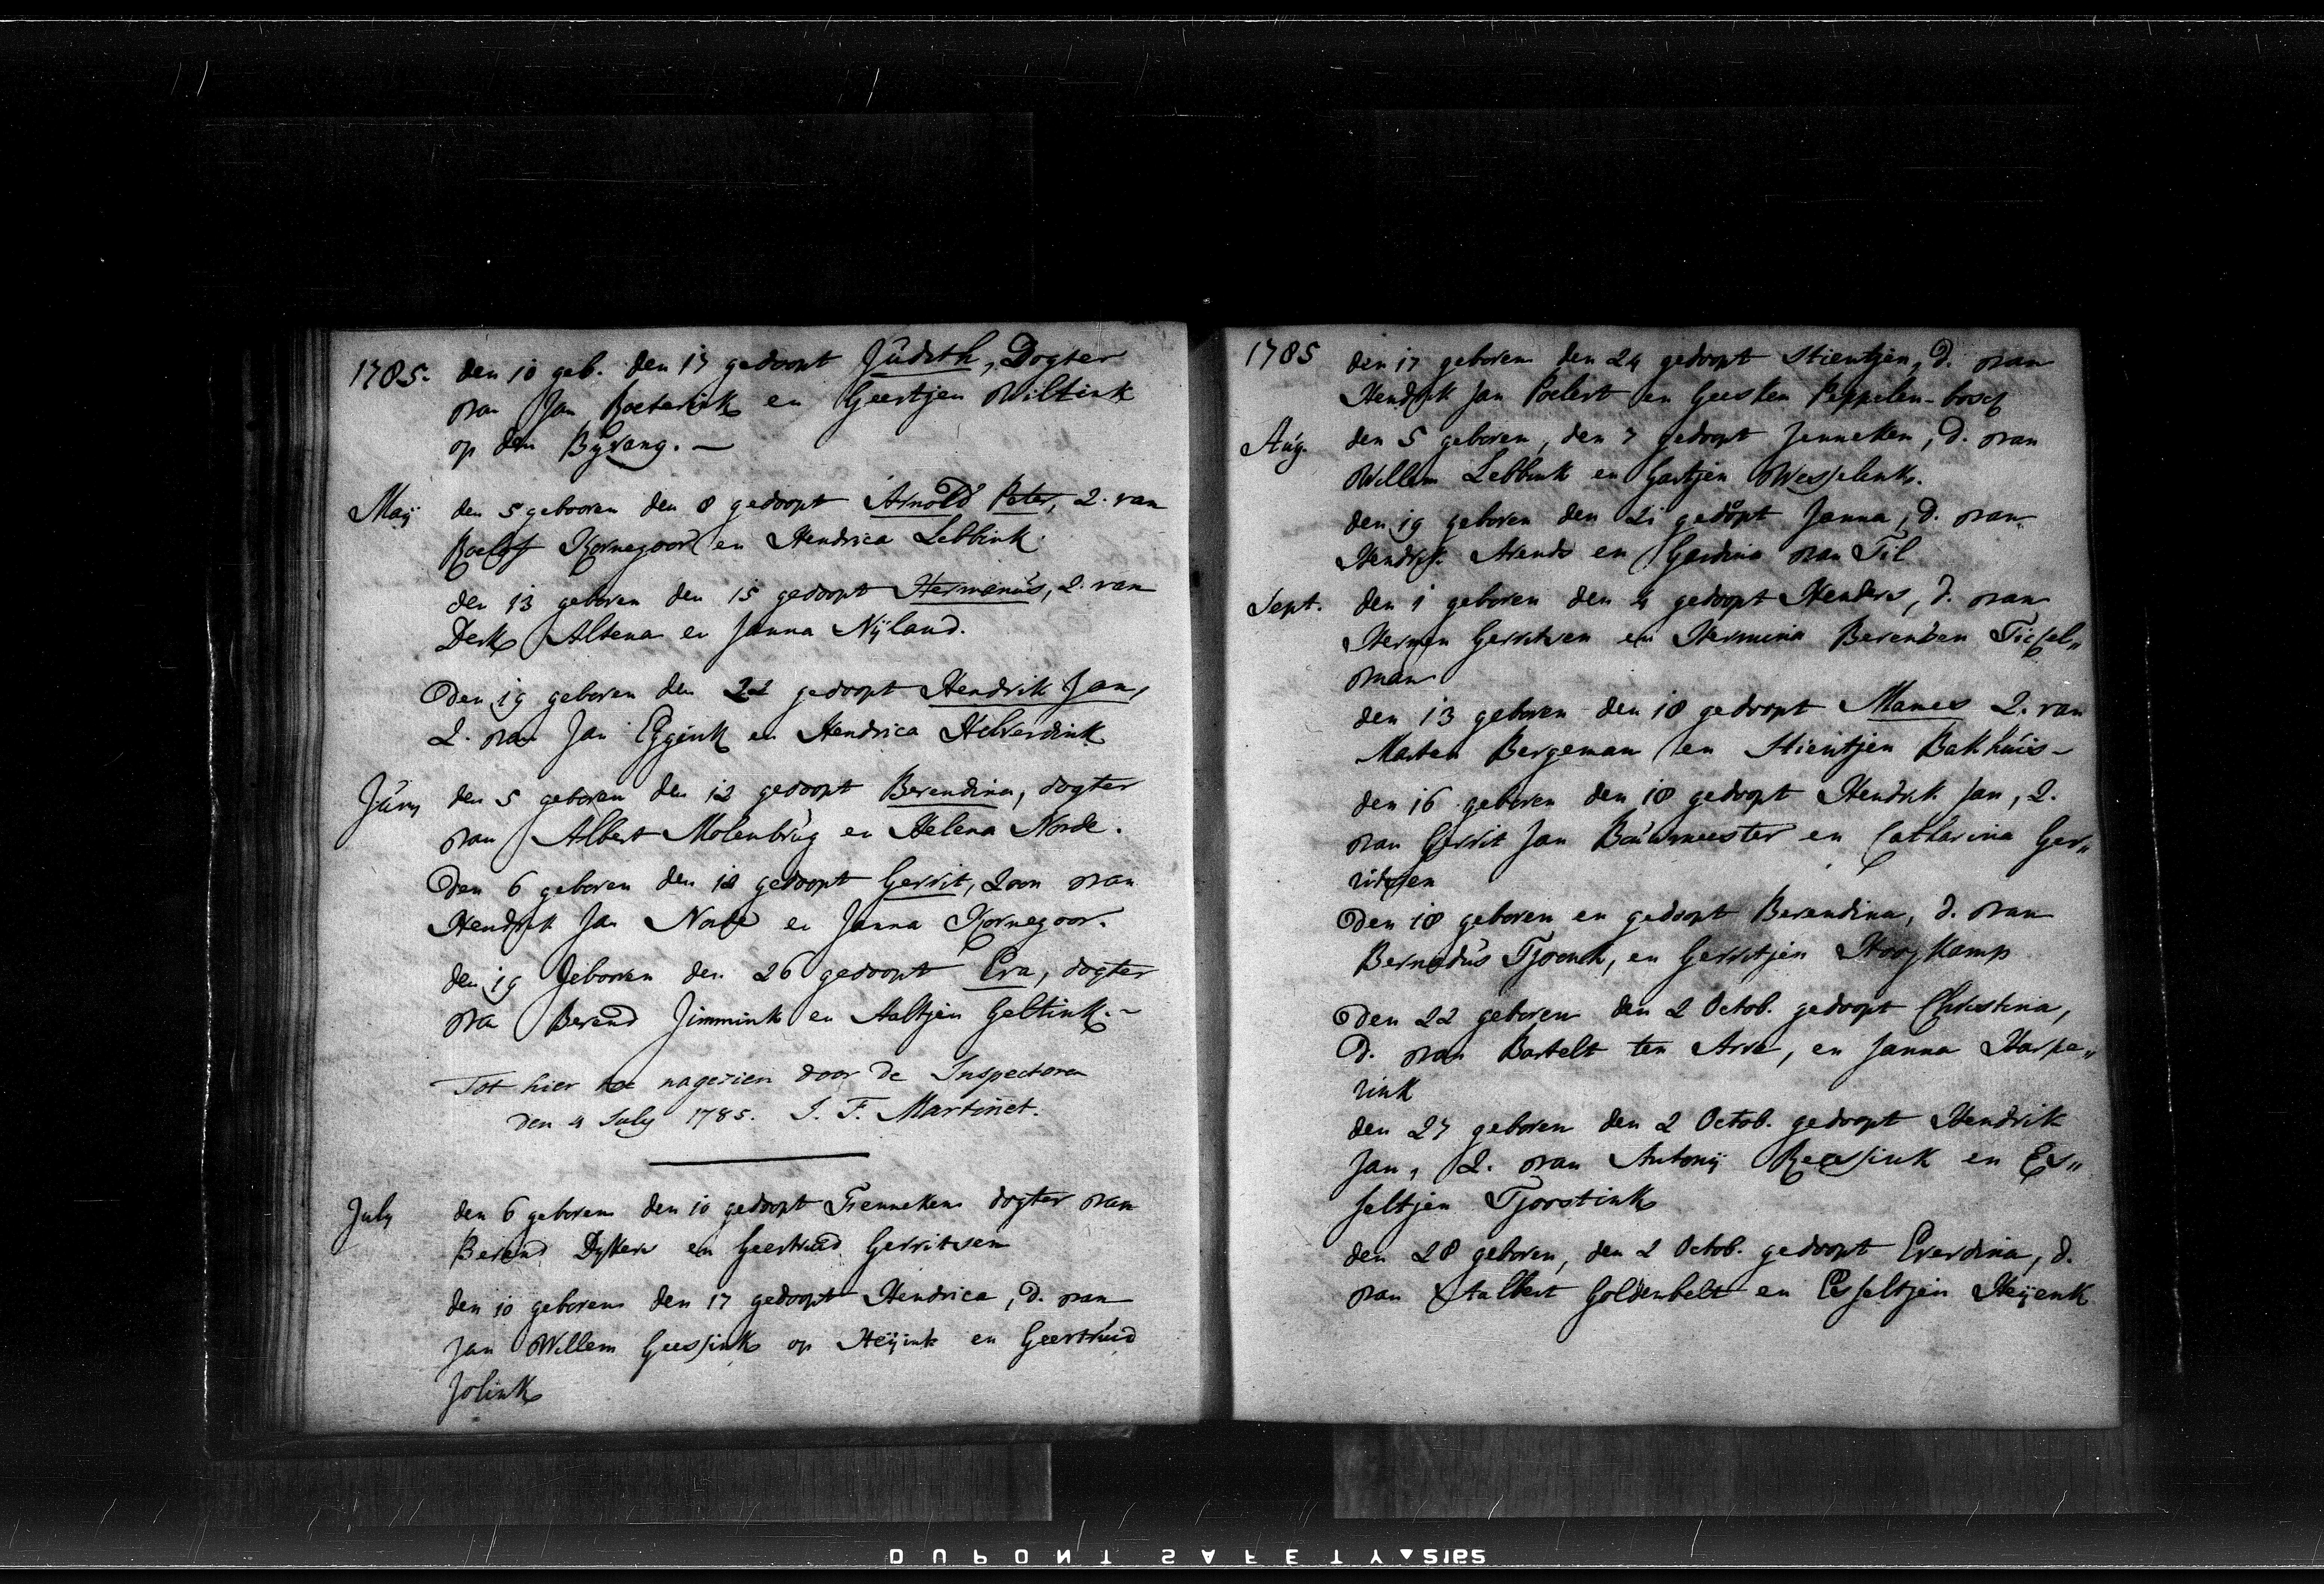 1785. den 10 geb. den 17 gedoopt Judith, Dogter
van Jan Roeterink en Geertjen Wiltink
op den Byvang. -
Maij den 5 gebooren den 8 gedoopt Arnold Peter, Z. van
Roelof Kornegoor en Hendrica Lebbink.
den 13 geboren den 15 gedoopt Hermanus, Z. van
Derk Altena en Janna Nijland.
Den 19 geboren den 22 gedoopt Hendrik Jan,
Z. van Jan Eggink en Hendrica Helverdink
Juny den 5 geboren den 12 gedoopt Berendina, dogter
van Albert Molenbrug en Helena Norde.
Den 6 geboren den 12 gedoopt Gerrit, Zoon van
Hendrik Jan Norde en Janna Kornegoor.
den 19 geboren den 26 gedoopt Eva, dogter
van Berend Jimmink en Aaltjen Geltink. -
Tot hier toe nagezien door de Inspectoren
den 4 July 1785. J. F. Martinet.
July den 6 geboren den 10 gedoopt Trenneken dogter van
Berend Dykers en Geertruid Gerritsen
den 10 geboren den 17 gedoopt Hendrica, d. van
Jan Willem Geessink op Heijink en Geertruid
Jolink
1785 den 17 geboren den 24 gedoopt Stientjen, d. van
Hendrik Jan Poelert en Geesken Peppelen-bosch
Aug. den 5 geboren, den 7 gedoopt Jenneken, d. van
Willem Lebbink en Gartjen Wesselink.
den 19 geboren den 21 gedoopt Janna, d. van
Hendrik Arends en Gerdina van Til
Sept. den 1 geboren den 4 gedoopt Henders, d. van
Hermen Gerritsen en Hermina Berendsen Tichel„
man
den 13 geboren den 18 gedoopt Manes Z. van
Marten Bergeman en Stientjen Bakhuis -
den 16 geboren den 18 gedoopt Hendrik Jan, Z.
van Gerrit Jan Bouwmeester en Catharina Ger„
ritsen
Den 18 geboren en gedoopt Berendina, d. van
Bernadus Tjoonk, en Gerritjen Hoogkamp
Den 22 geboren den 2 Octob. gedoopt Christina,
D. van Bartelt ten Arve, en Janna Harpe„
rink
den 27 geboren den 2 Octob. gedoopt Hendrik
Jan, Z. van Antonij Reessink en Es„
seltjen Tjoostink
den 28 geboren, den 2 Octob. gedoopt Everdina, d.
van Aalbert Goldenbelt en Esseltjen Heijenk
DUPONT SAFETY 5192